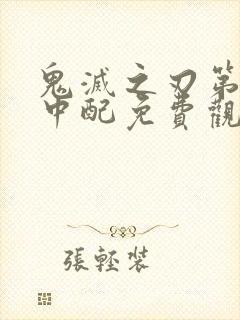 鬼滅之刃第
中配免費觀
張輕裝